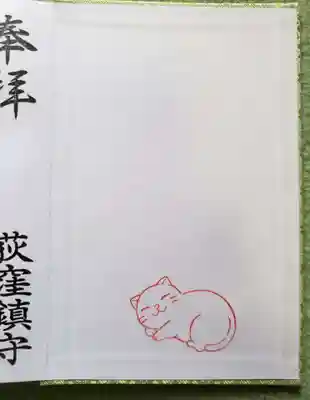 奉拝
荻窪鎮守